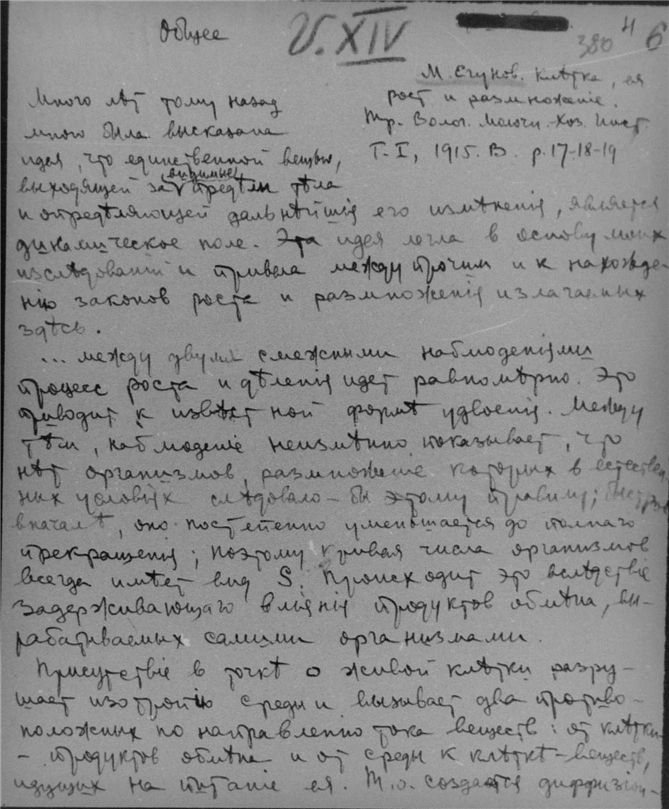 Общее
V. XIV
380
4
6
М. Егунов. Клѣтка, ея
рост и размноженіе.
Тр. Волог. Молочн.-Хоз. Инст.
Т. I, 1915. В. р. 17-18-19
Много лѣт тому назад
мною была высказана
идея, что единственной вещью,
выходящей за видимые предѣлы тѣла
и опредѣляющей дальнѣйшія его измѣненія, является
динамическое поле. Эта идея легла в основу моих
изслѣдованій и привела между прочим и к нахожде-
нію законов роста и размноженія излагаемых
здѣсь.
... между двумя смежными наблюденіями
процесс роста и дѣленія идет равномѣрно. Это
приводит к извѣстной формѣ удвоенія. Между
тѣм, наблюденіе неизмѣнно показывает, что
нѣт организмов, размноженіе которых в естествен-
ных условіях слѣдовало-бы этому правилу; быстрое
вначалѣ, оно постепенно уменьшается до полнаго
прекращенія; поэтому кривая числа организмов
всегда имѣет вид S. Происходит это вслѣдствіе
задерживающаго вліянія продуктов обмѣна, вы-
рабатываемых самими организмами.
Присутствіе в точкѣ о живой клѣтки разру-
шает изотропію среды и вызывает два противо-
положных по направленію тока веществ: от клѣтки
- продуктов обмѣна и от среды к клѣткѣ - веществ,
идущих на питаніе ея. Т. о. создается диффузіон-